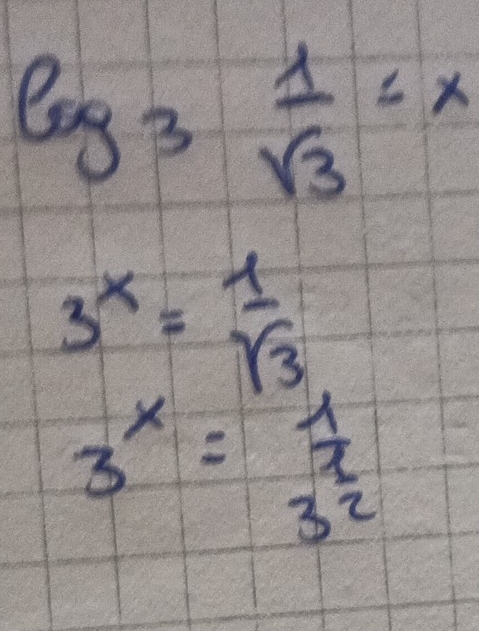 log₃ 1/√3 = x
3ˣ = 1/√3
3ˣ = 1/3^(1/2)